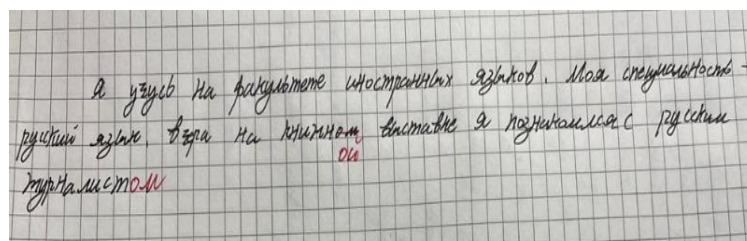 Я учусь на факультете иностранных языков. Моя специальность -
русский язык. Вчера на книжном выставке я познакомился с русским
ой
журналистом